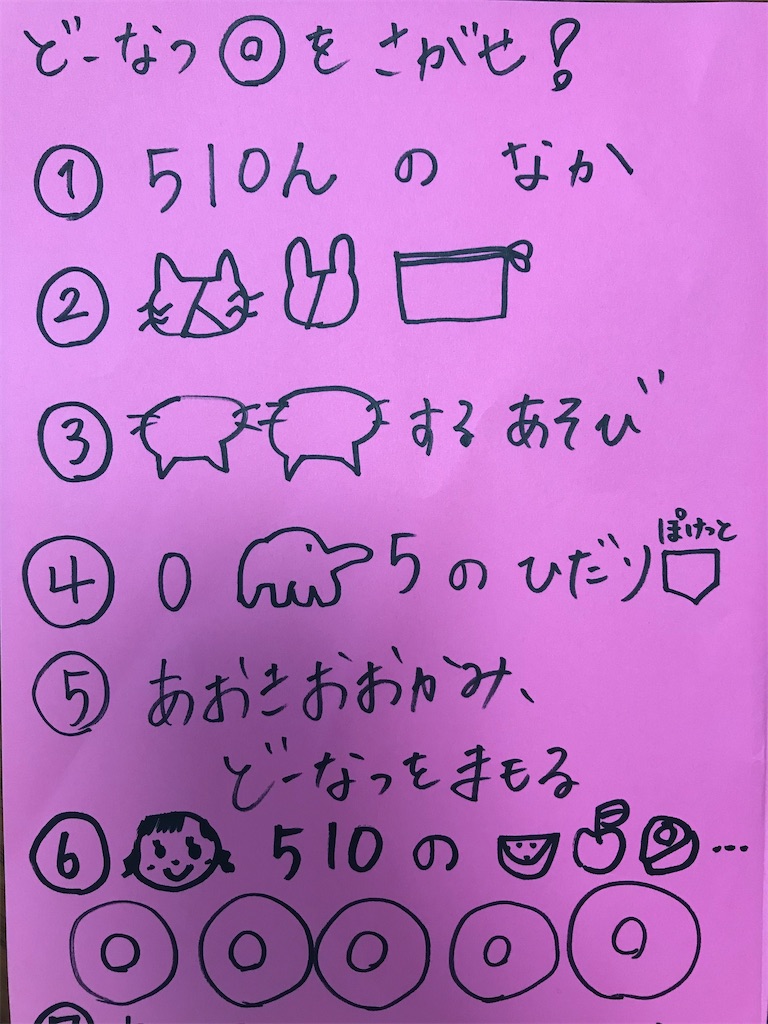 どーなつをさがせ!
① 510ん の なか
②
③ するあそび
④ 0 5 の ひだり ぽけっと
⑤ あおきおおかみ、
どーなつをまもる
⑥ 510 の …